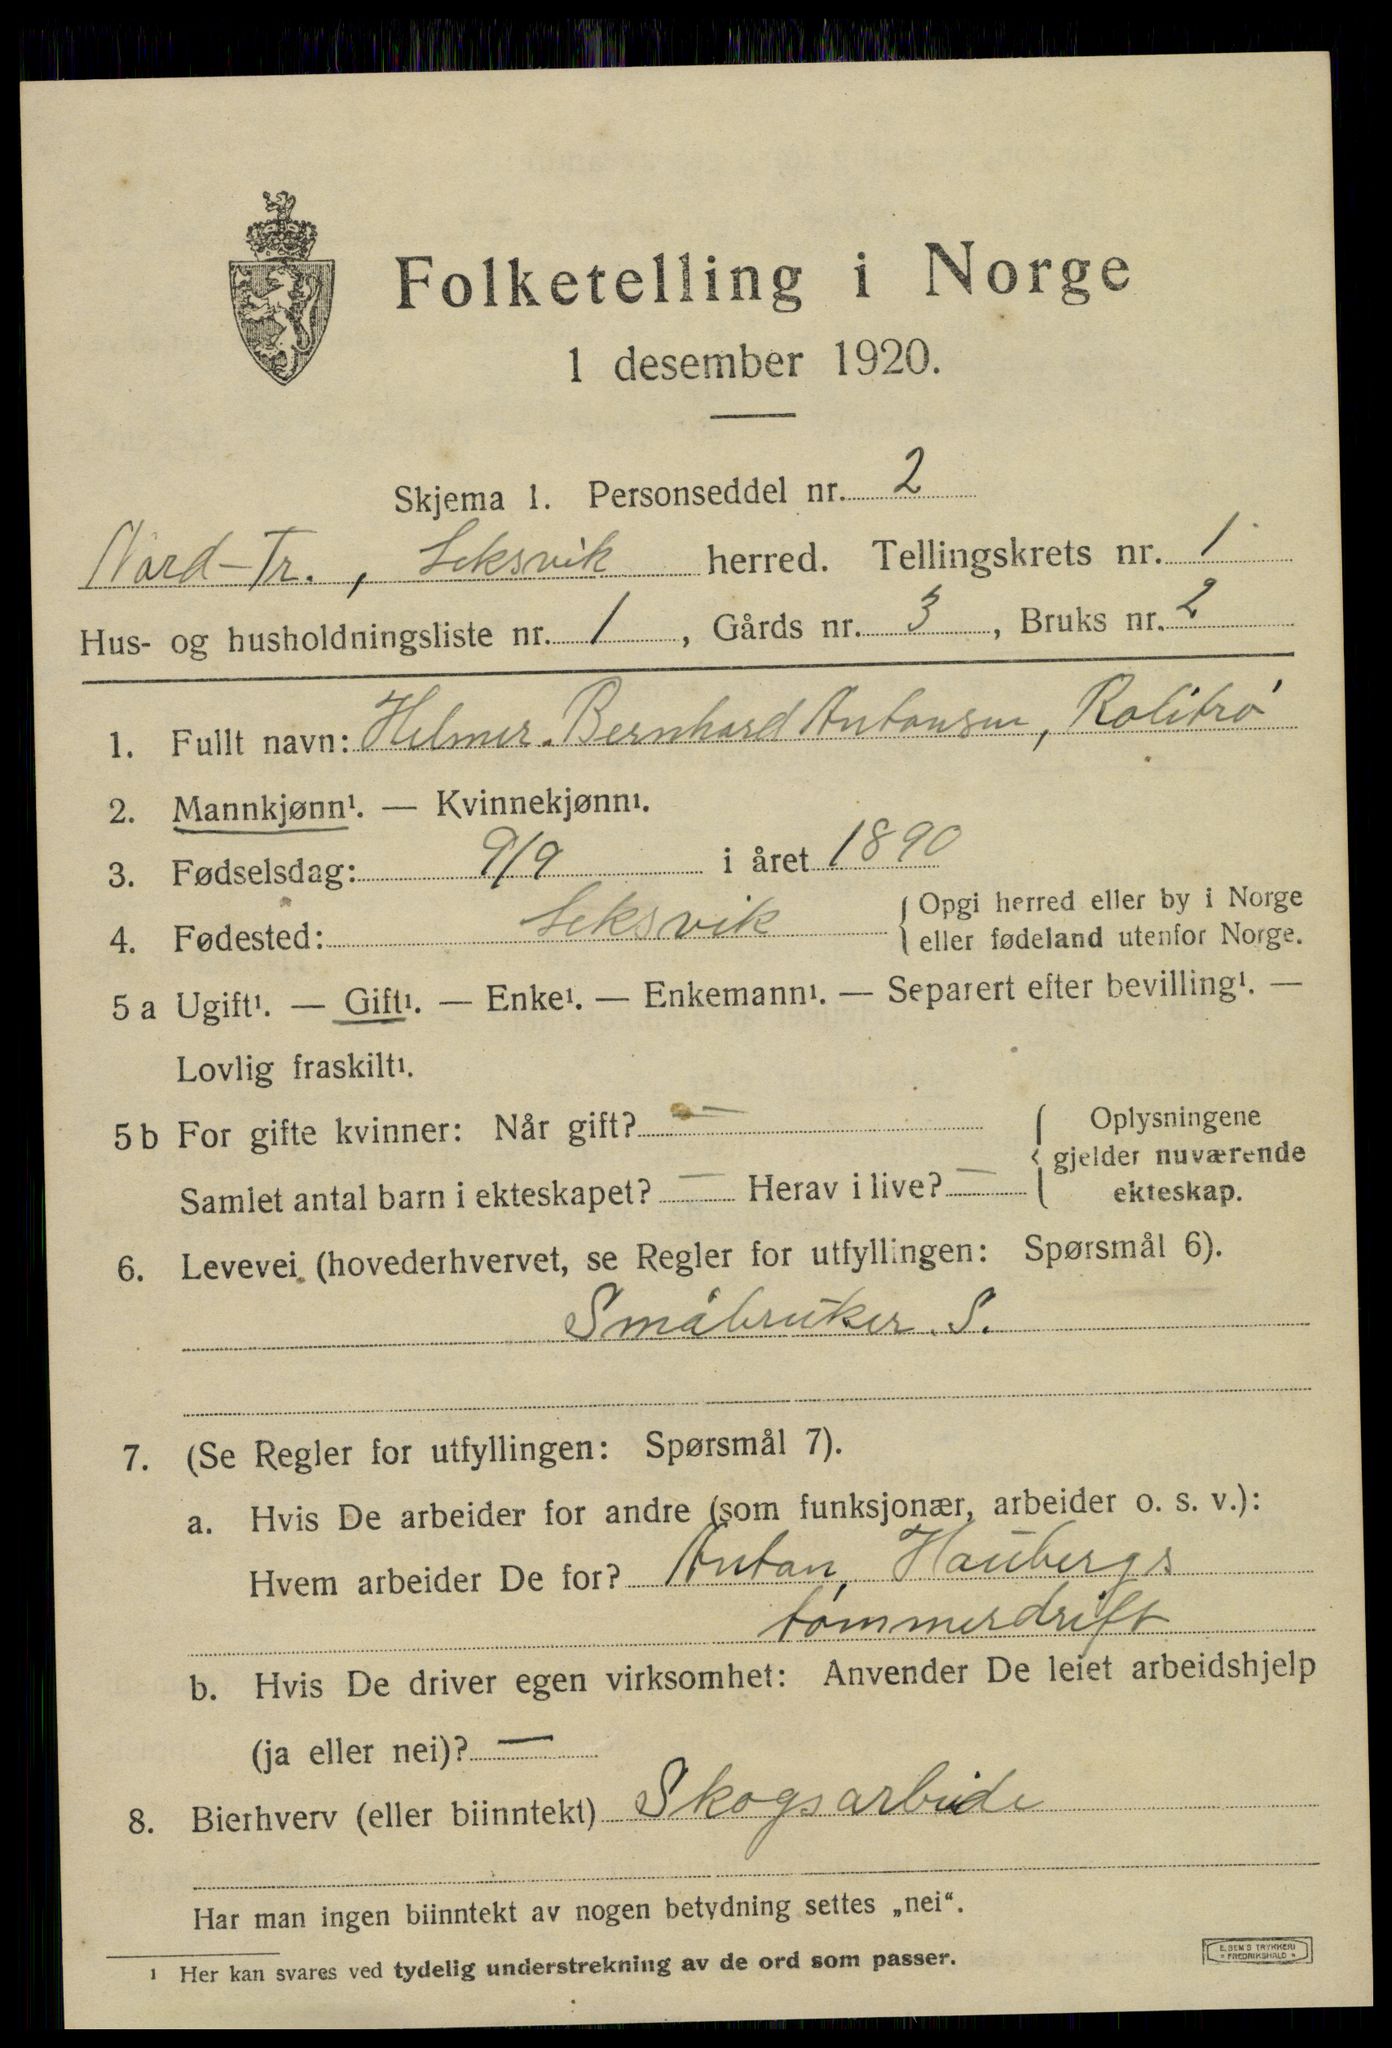 Folketelling i Norge
1 desember 1920.
Skjema 1. Personseddel nr. 2
Nord-Tr., Leksvik herred. Tellingskrets nr. 1
Hus- og husholdningsliste nr. 1, Gårds nr. 3, Bruks nr. 2
1. Fullt navn: Helmer Bernhard Antonsen, Rolitrø
2. Mannkjønn¹. — Kvinnekjønn¹.
3. Fødselsdag: 9/9 i året 1890
4. Fødested: Leksvik { Opgi herred eller by i Norge
eller fødeland utenfor Norge.
5 a Ugift¹. — Gift¹. — Enke¹. — Enkemann¹. — Separert efter bevilling¹. —
Lovlig fraskilt¹.
5 b For gifte kvinner: Når gift? — { Oplysningene
gjelder nuværende
Samlet antal barn i ekteskapet? — Herav i live? — ekteskap.
6. Levevei (hovederhvervet, se Regler for utfyllingen: Spørsmål 6).
Småbruker. S.
7. (Se Regler for utfyllingen: Spørsmål 7).
a. Hvis De arbeider for andre (som funksjonær, arbeider o. s. v.):
Hvem arbeider De for? Anton Haubergs
tømmerdrift
b. Hvis De driver egen virksomhet: Anvender De leiet arbeidshjelp
(ja eller nei)? —
8. Bierhverv (eller biinntekt) Skogsarbeide
Har man ingen biinntekt av nogen betydning settes „nei“.
¹ Her kan svares ved tydelig understrekning av de ord som passer.
E. SEM'S TRYKKERI
* FREDRIKSHALD *